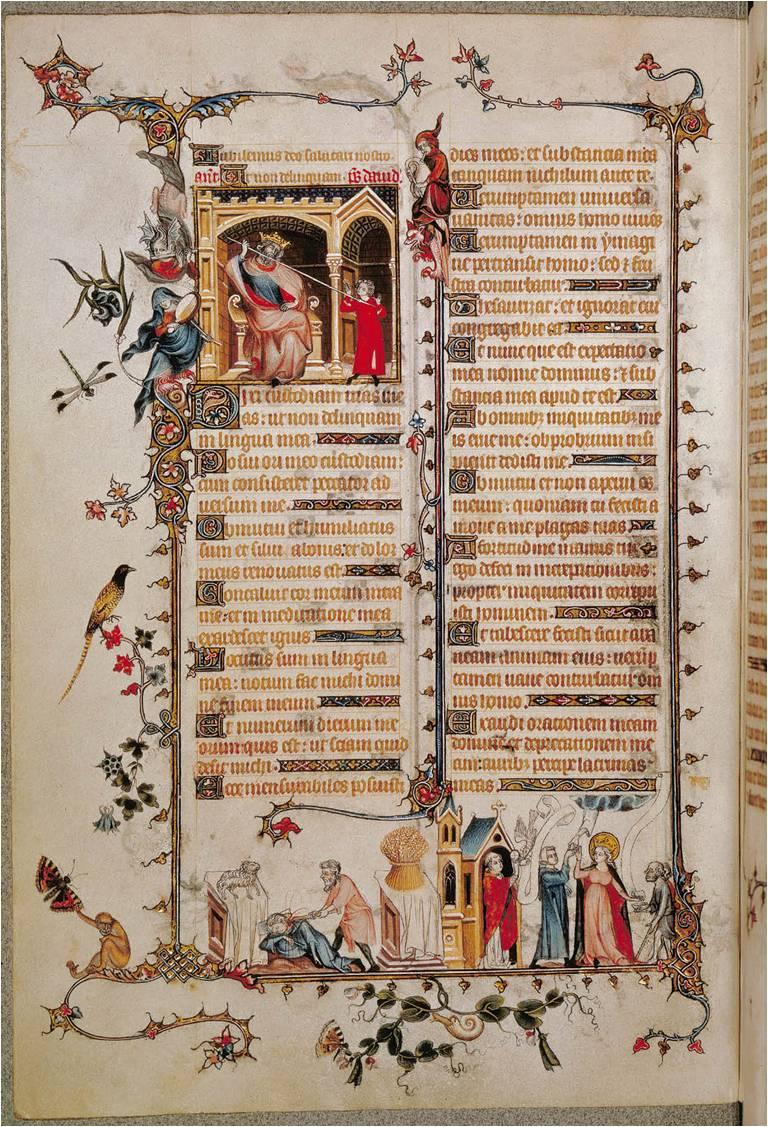 Iubilemus deo salutari nostro
ant. Ut non delinquam. ps. david
Dixi custodiam vias me
as: ut non delinquam
in lingua mea.
Posui ori meo custodiam:
cum consisteret peccator ad
versum me.
Obmutui et humiliatus
sum et silui a bonis: et dolor
meus renovatus est.
Concaluit cor meum intra
me: et in meditatione mea
exardescet ignis.
Locutus sum in lingua
mea: notum fac michi domi
ne finem meum.
Et numerum dierum me
orum quis est: ut sciam quid
desit michi.
Ecce mensurabiles posuisti
dies meos: et substancia mea
tanquam nichilum ante te.
Verumptamen universa
vanitas: omnis homo vivens
Verumptamen in ymagi
ne pertransit homo: sed et frus
tra conturbatur.
Thesaurizat: et ignorat cui
congregabit ea.
Et nunc que est expectatio
mea nonne dominus: et sub
stancia mea apud te est.
Ab omnibus iniquitatibus me
is erue me: obprobrium insi
pienti dedisti me.
Obmutui et non aperui os
meum: quoniam tu fecisti a
move a me plagas tuas
A fortitudine manus tue
ego defeci in increpationibus:
propter iniquitatem corripu
isti hominem.
Et tabescere fecisti sicut ara
neam animam eius: verump
tamen vane conturbatur om
nis homo.
Exaudi orationem meam
domine et deprecationem me
am: auribus percipe lacrimas
meas.